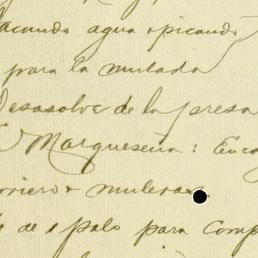 sacando agua y picando
para la mulada
Desasolve de la presa
Marqueseña: Enca
arriero y muleras
de 1 palo para comp